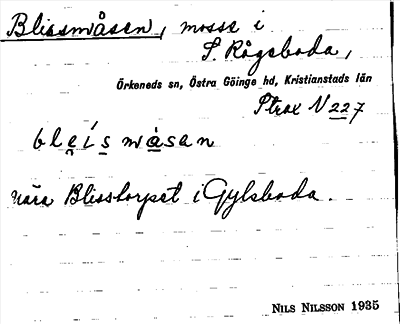 Blissmåsen, mosse i
S. Rågeboda,
Örkeneds sn, Östra Göinge hd, Kristianstads län
Strax N 227
bleís måsan
nära Blisstorpet i Gylsboda.
NILS NILSSON 1935